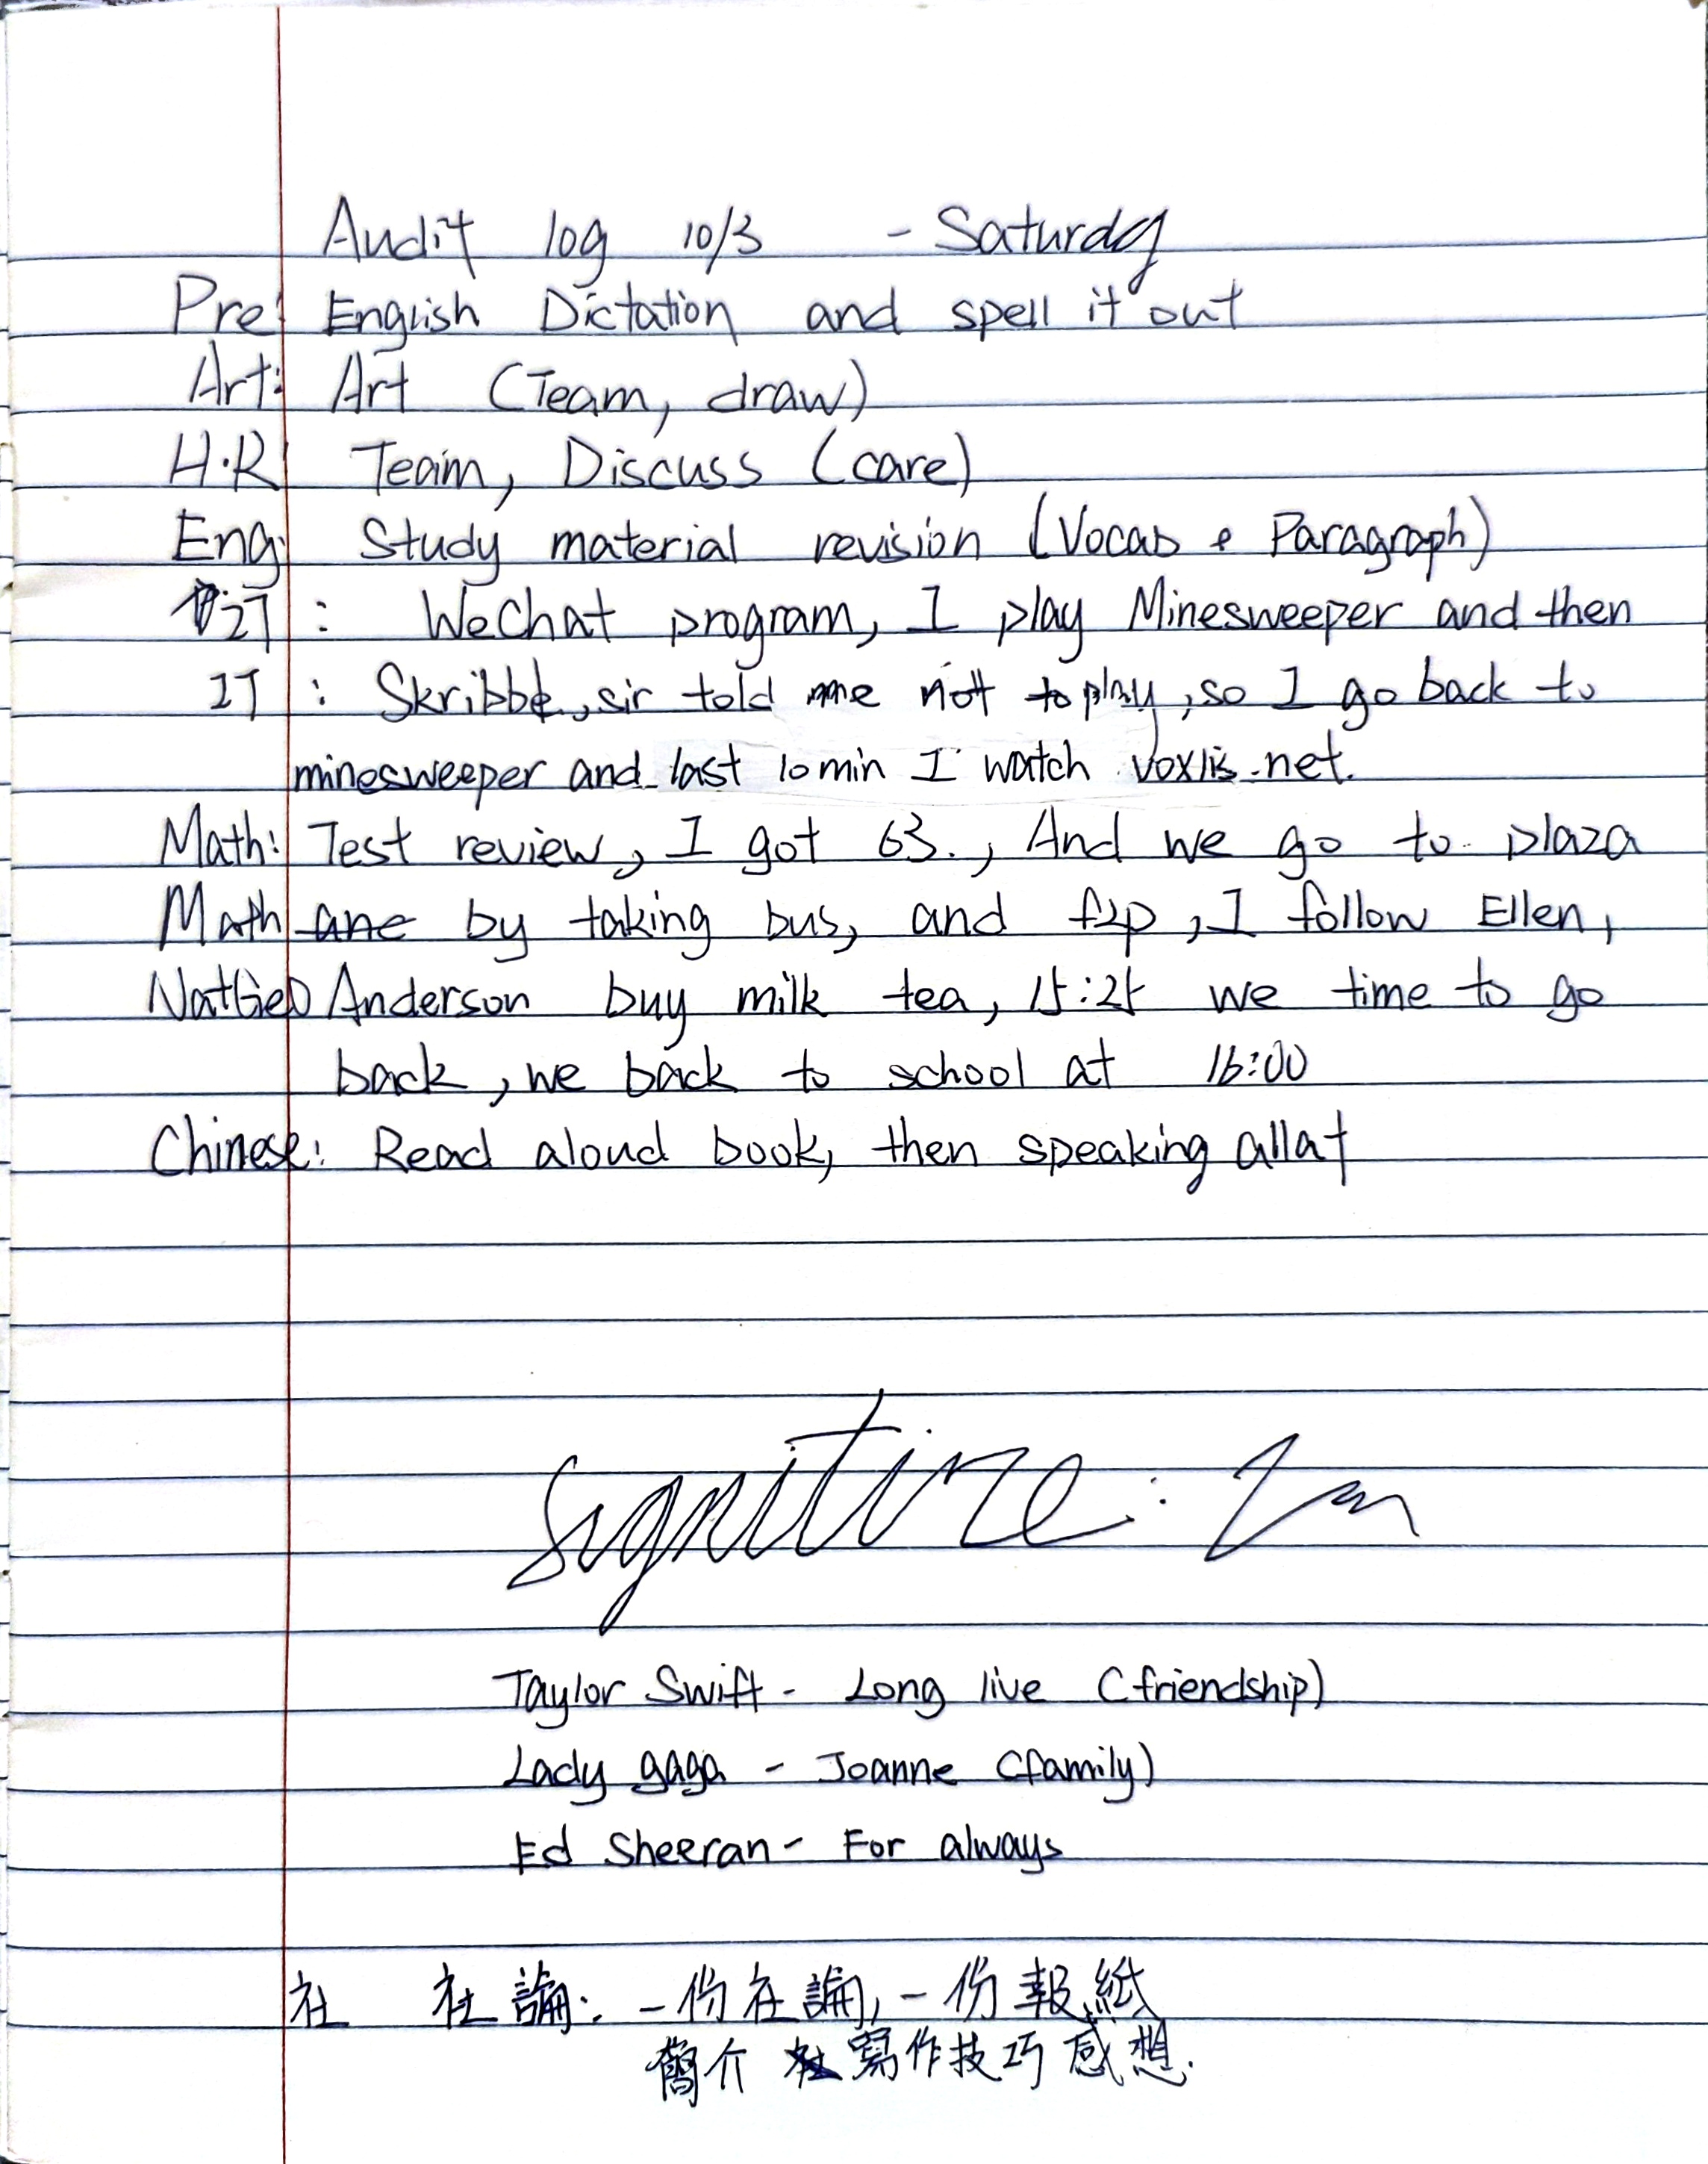 Audit log 10/3 - Saturday
Pre: English Dictation and spell it out
Art: Art (Team, draw)
H.R Team, Discuss (care)
Eng: Study material revision (Vocab & Paragraph)
IT : WeChat program, I play Minesweeper and then
IT : Skribbl, sir told me not to play, so I go back to
minesweeper and last 10 min I watch voxlis.net.
Math: Test review, I got 63., And we go to plaza
Math ane by taking bus, and f2p, I follow Ellen,
NatGeo Anderson buy milk tea, 15:25 we time to go
back, we back to school at 16:00
Chinese: Read aloud book, then speaking allat
Signiture:
Taylor Swift - Long live (friendship)
Lady gaga - Joanne (family)
Ed Sheeran - For always
社 社論: 一份社論, 一份報紙
簡介 寫作技巧 感想.